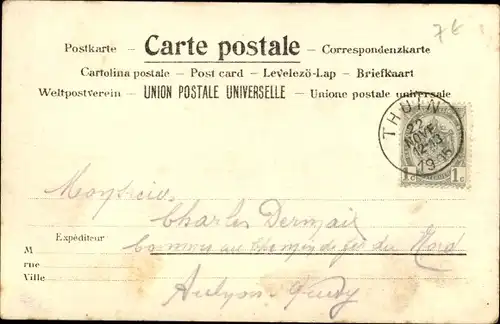 7 €
Postkarte – Carte postale – Correspondenzkarte
Cartolina postale – Post card – Levelező-Lap – Briefkaart
Weltpostverein – UNION POSTALE UNIVERSELLE – Unione postale universale
THUIN
22
NOVE
12-13
1905
1c 1c
Charles
Expéditeur
au Chemin de fer du Nord
M
rue
Ville